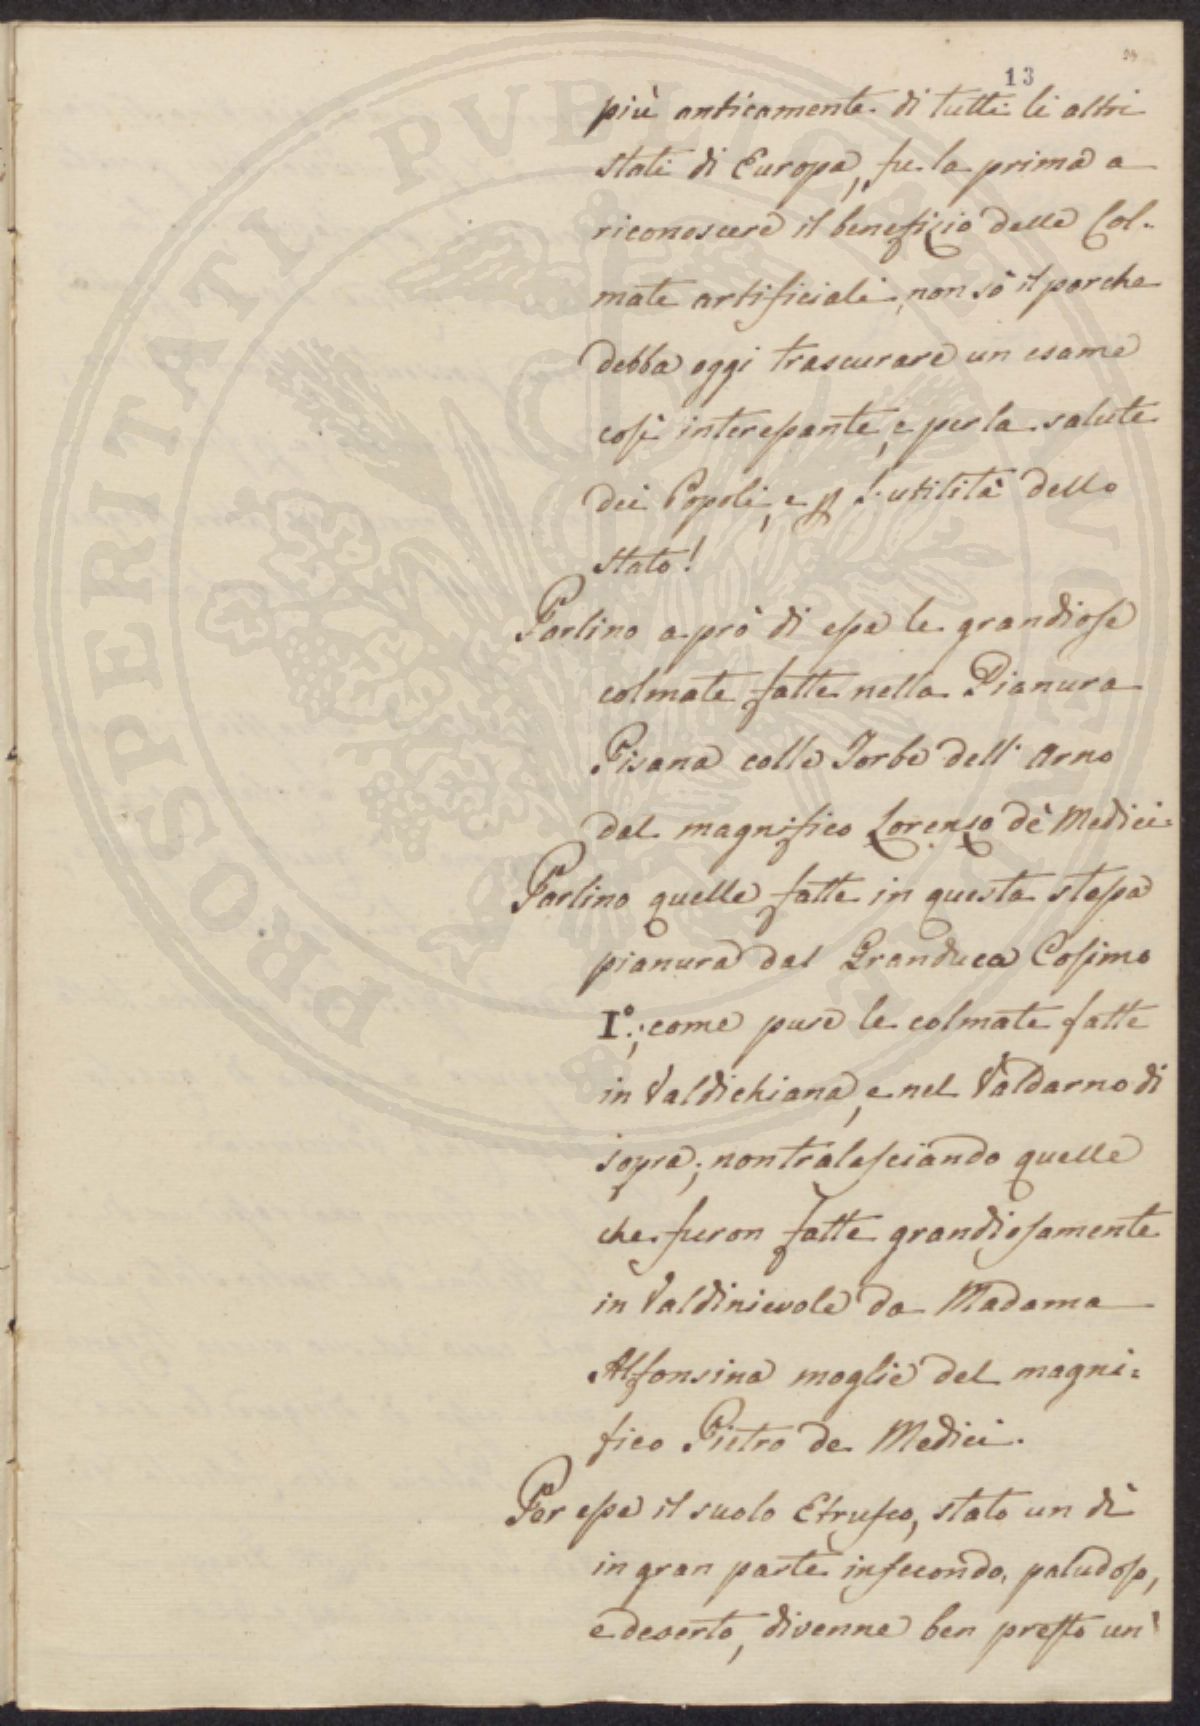 13
più anticamente di tutti li altri
stati di Europa, fu la prima a
riconoscere il benefizio delle Col-
mate artificiali, non sò il perche
debba oggi trascurare un esame
così interessante, e per la salute
dei Popoli, e p l'utilità dello
stato!
Parlino a prò di essa le grandiose
colmate fatte nella Pianura
Pisana colle Torbe dell'Arno
dal magnifico Lorenzo dè Medici.
Parlino quelle fatte in questa stessa
pianura dal Granduca Cosimo
I°.; come pure le colmate fatte
in Valdichiana, e nel Valdarno di
sopra; non tralasciando quelle
che furon fatte grandiosamente
in Valdinievole da Madama
Alfonsina moglie del magni=
fico Pietro de Medici.
Per essa il suolo Etrusco, stato un dì
in gran parte infecondo, paludoso,
e deserto, divenne ben presto un'
PROSPERITATI PVBLICAE